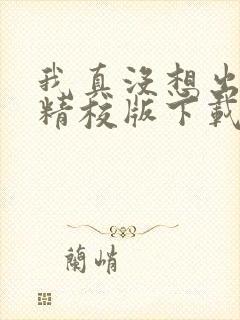 我真没想出
精校版下载
兰峭